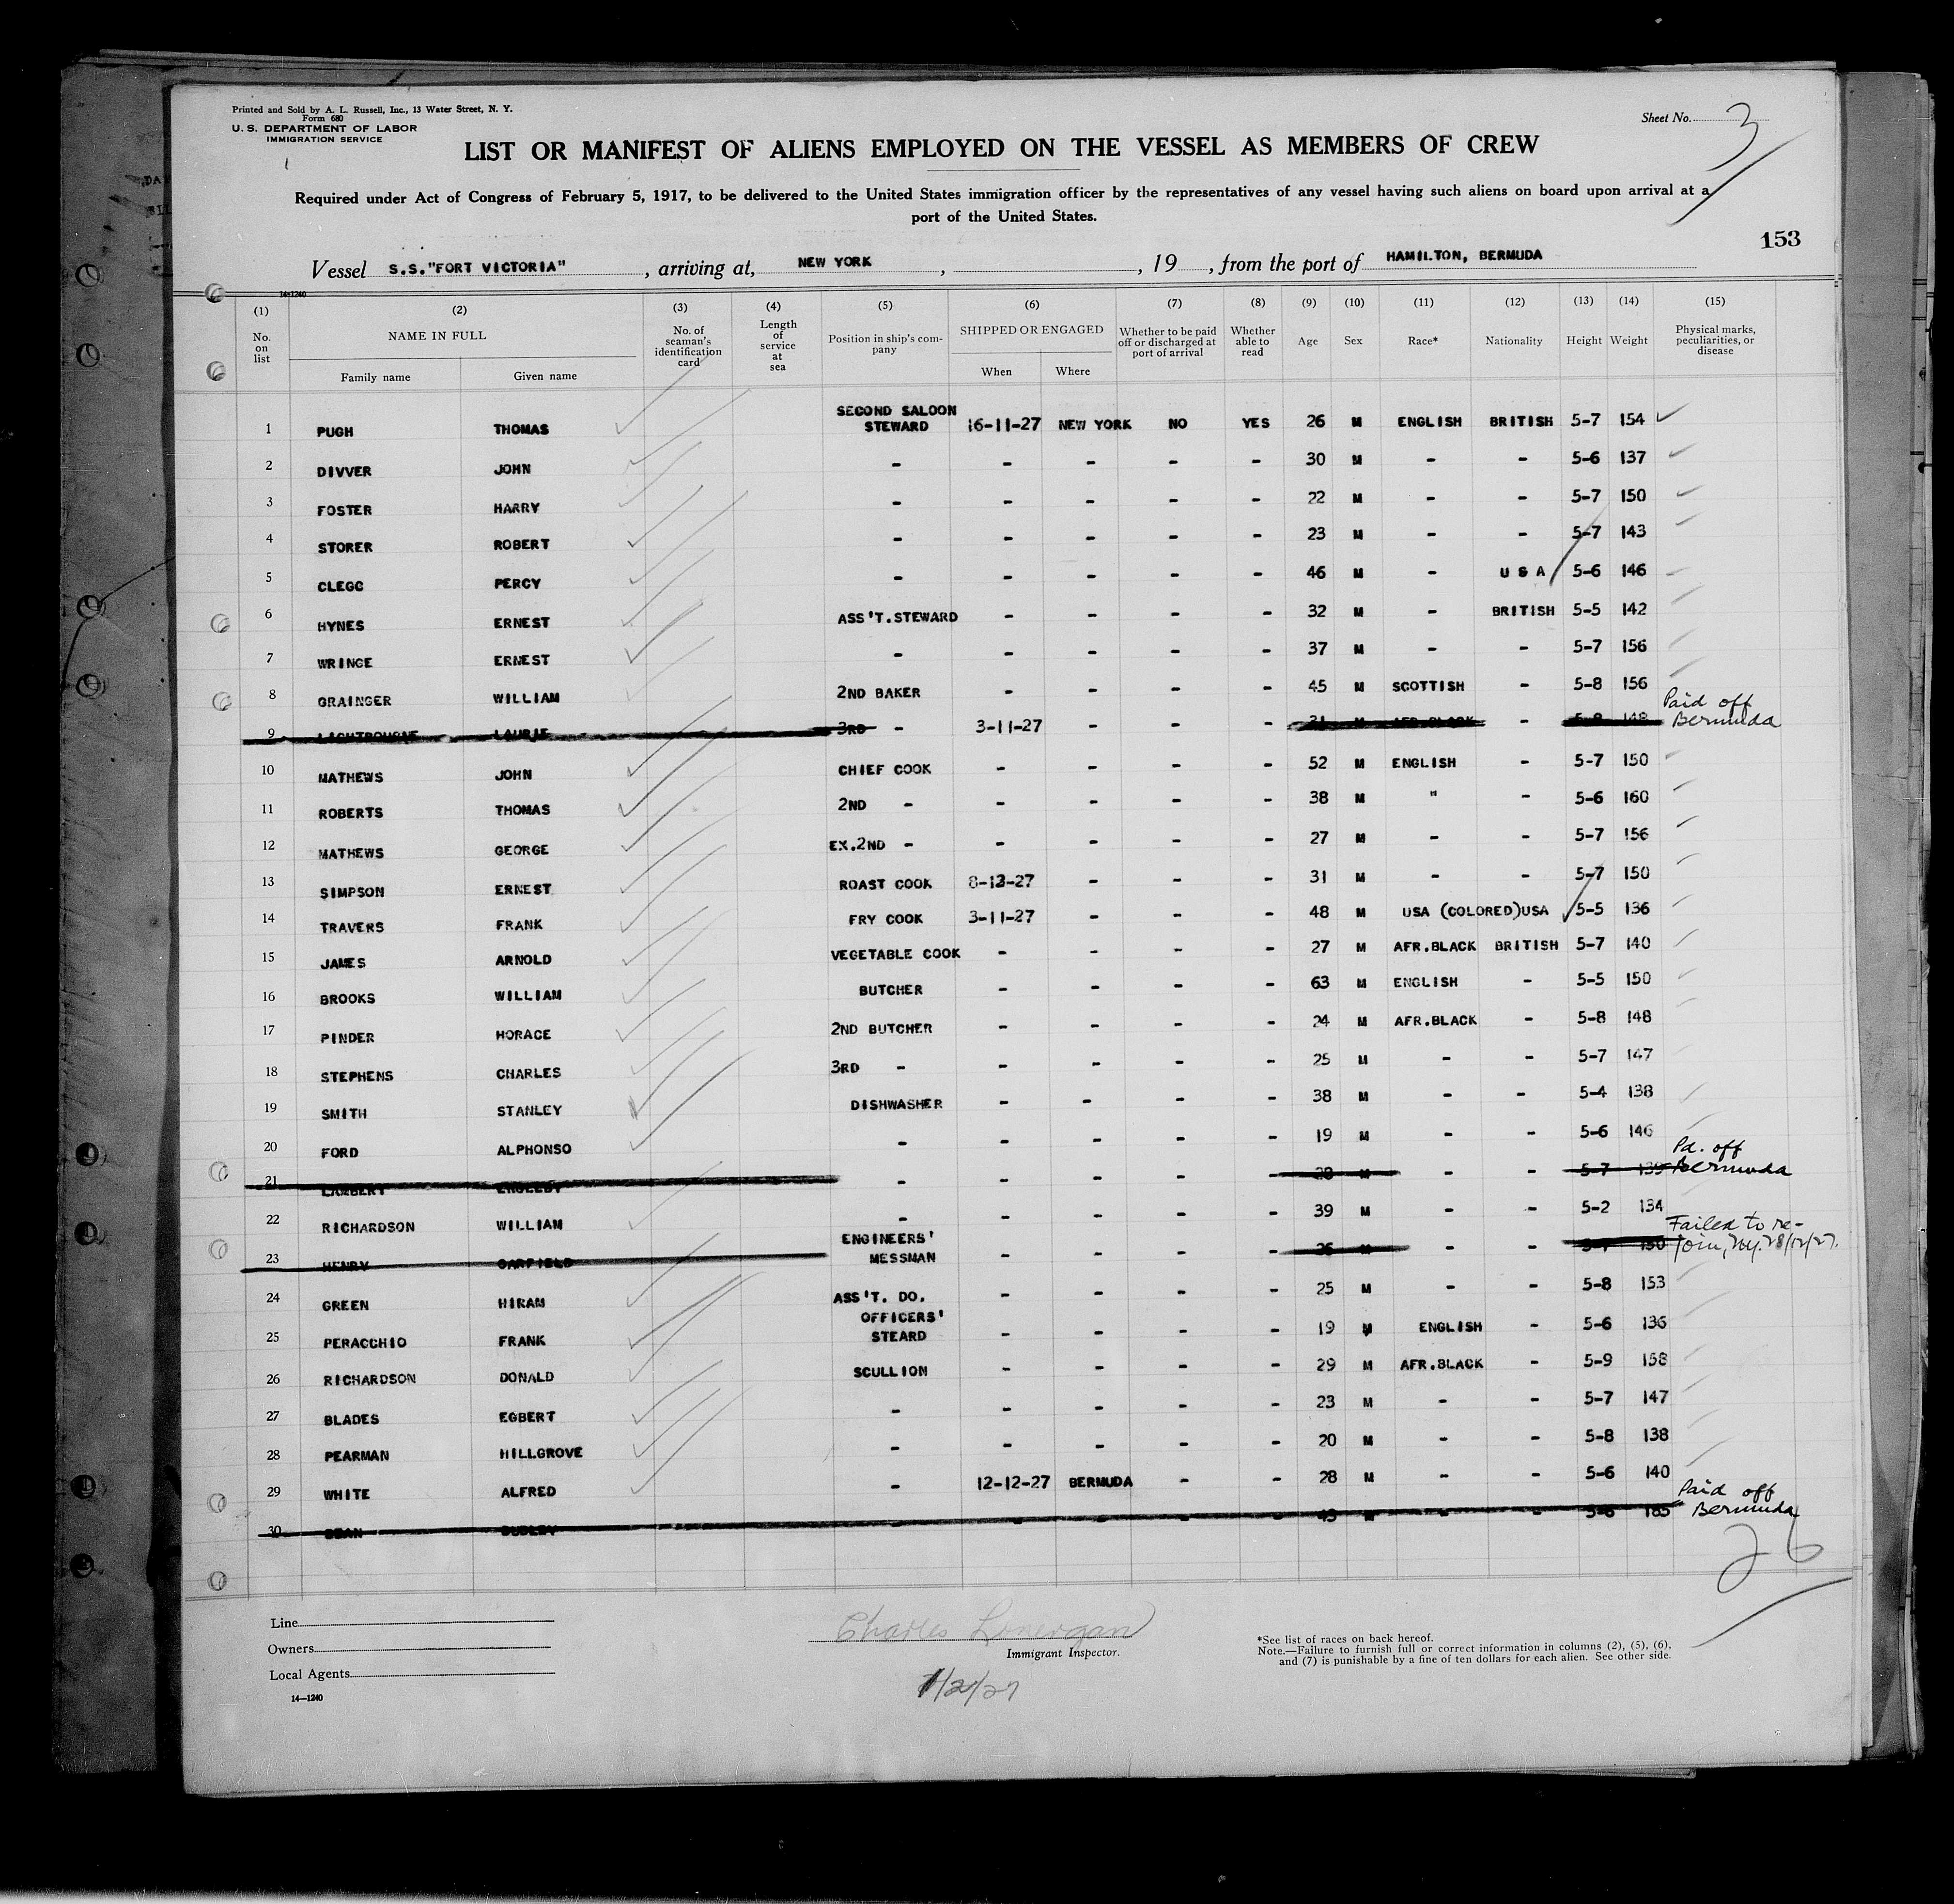 Printed and Sold by A. L. Russell, Inc., 13 Water Street, N. Y.
Form 680
U. S. DEPARTMENT OF LABOR
IMMIGRATION SERVICE
Sheet No. 3
LIST OR MANIFEST OF ALIENS EMPLOYED ON THE VESSEL AS MEMBERS OF CREW
Required under Act of Congress of February 5, 1917, to be delivered to the United States immigration officer by the representatives of any vessel having such aliens on board upon arrival at a
port of the United States.
153
Vessel S.S."FORT VICTORIA", arriving at, NEW YORK, , 19 , from the port of HAMILTON, BERMUDA
14-1240
(1) (2) (3) (4) (5) (6) (7) (8) (9) (10) (11) (12) (13) (14) (15)
No. on list NAME IN FULL No. of seaman's identification card Length of service at sea Position in ship's company SHIPPED OR ENGAGED Whether to be paid off or discharged at port of arrival Whether able to read Age Sex Race* Nationality Height Weight Physical marks, peculiarities, or disease
Family name Given name When Where
1 PUGH THOMAS SECOND SALOON STEWARD 16-11-27 NEW YORK NO YES 26 M ENGLISH BRITISH 5-7 154
2 DIVVER JOHN - - - - - 30 M - - 5-6 137
3 FOSTER HARRY - - - - - 22 M - - 5-7 150
4 STORER ROBERT - - - - - 23 M - - 5-7 143
5 CLEGG PERCY - - - - - 46 M - U S A 5-6 146
6 HYNES ERNEST ASS'T.STEWARD - - - - 32 M - BRITISH 5-5 142
7 WRINCE ERNEST - - - - - 37 M - - 5-7 156
8 GRAINGER WILLIAM 2ND BAKER - - - - 45 M SCOTTISH - 5-8 156
9 LIGHTBOURNE LAURIE 3RD - 3-11-27 - - - 31 M AFR.BLACK - 5-8 148 Paid off Bermuda
10 MATHEWS JOHN CHIEF COOK - - - - 52 M ENGLISH - 5-7 150
11 ROBERTS THOMAS 2ND - - - - - 38 M " - 5-6 160
12 MATHEWS GEORGE EX.2ND - - - - - 27 M - - 5-7 156
13 SIMPSON ERNEST ROAST COOK 8-12-27 - - - 31 M - - 5-7 150
14 TRAVERS FRANK FRY COOK 3-11-27 - - - 48 M USA (COLORED)USA 5-5 136
15 JAMES ARNOLD VEGETABLE COOK - - - - 27 M AFR.BLACK BRITISH 5-7 140
16 BROOKS WILLIAM BUTCHER - - - - 63 M ENGLISH - 5-5 150
17 PINDER HORACE 2ND BUTCHER - - - - 24 M AFR.BLACK - 5-8 148
18 STEPHENS CHARLES 3RD - - - - - 25 M - - 5-7 147
19 SMITH STANLEY DISHWASHER - - - - 38 M - - 5-4 138
20 FORD ALPHONSO - - - - - 19 M - - 5-6 146
21 LAMBERT - - - - - M - - 5-7 Pd. off Bermuda
22 RICHARDSON WILLIAM - - - - - 39 M - - 5-2 134
23 HENRY GARFIELD ENGINEERS' MESSMAN - - - - 26 M - - 5-7 150 Failed to rejoin, N.Y. 28/12/27.
24 GREEN HIRAM ASS'T. DO. - - - - 25 M - - 5-8 153
25 PERACCHIO FRANK OFFICERS' STEARD - - - - 19 M ENGLISH - 5-6 136
26 RICHARDSON DONALD SCULLION - - - - 29 M AFR.BLACK - 5-9 158
27 BLADES EGBERT - - - - - 23 M - - 5-7 147
28 PEARMAN HILLGROVE - - - - - 20 M - - 5-8 138
29 WHITE ALFRED - 12-12-27 BERMUDA - - 28 M - - 5-6 140
30 DEAN DUDLEY - - - - 43 M - - 5-6 165 Paid off Bermuda
26
Line
Owners
Local Agents
14—1240
Charles Lonergan
Immigrant Inspector.
1/2/27
*See list of races on back hereof.
Note.—Failure to furnish full or correct information in columns (2), (5), (6),
and (7) is punishable by a fine of ten dollars for each alien. See other side.